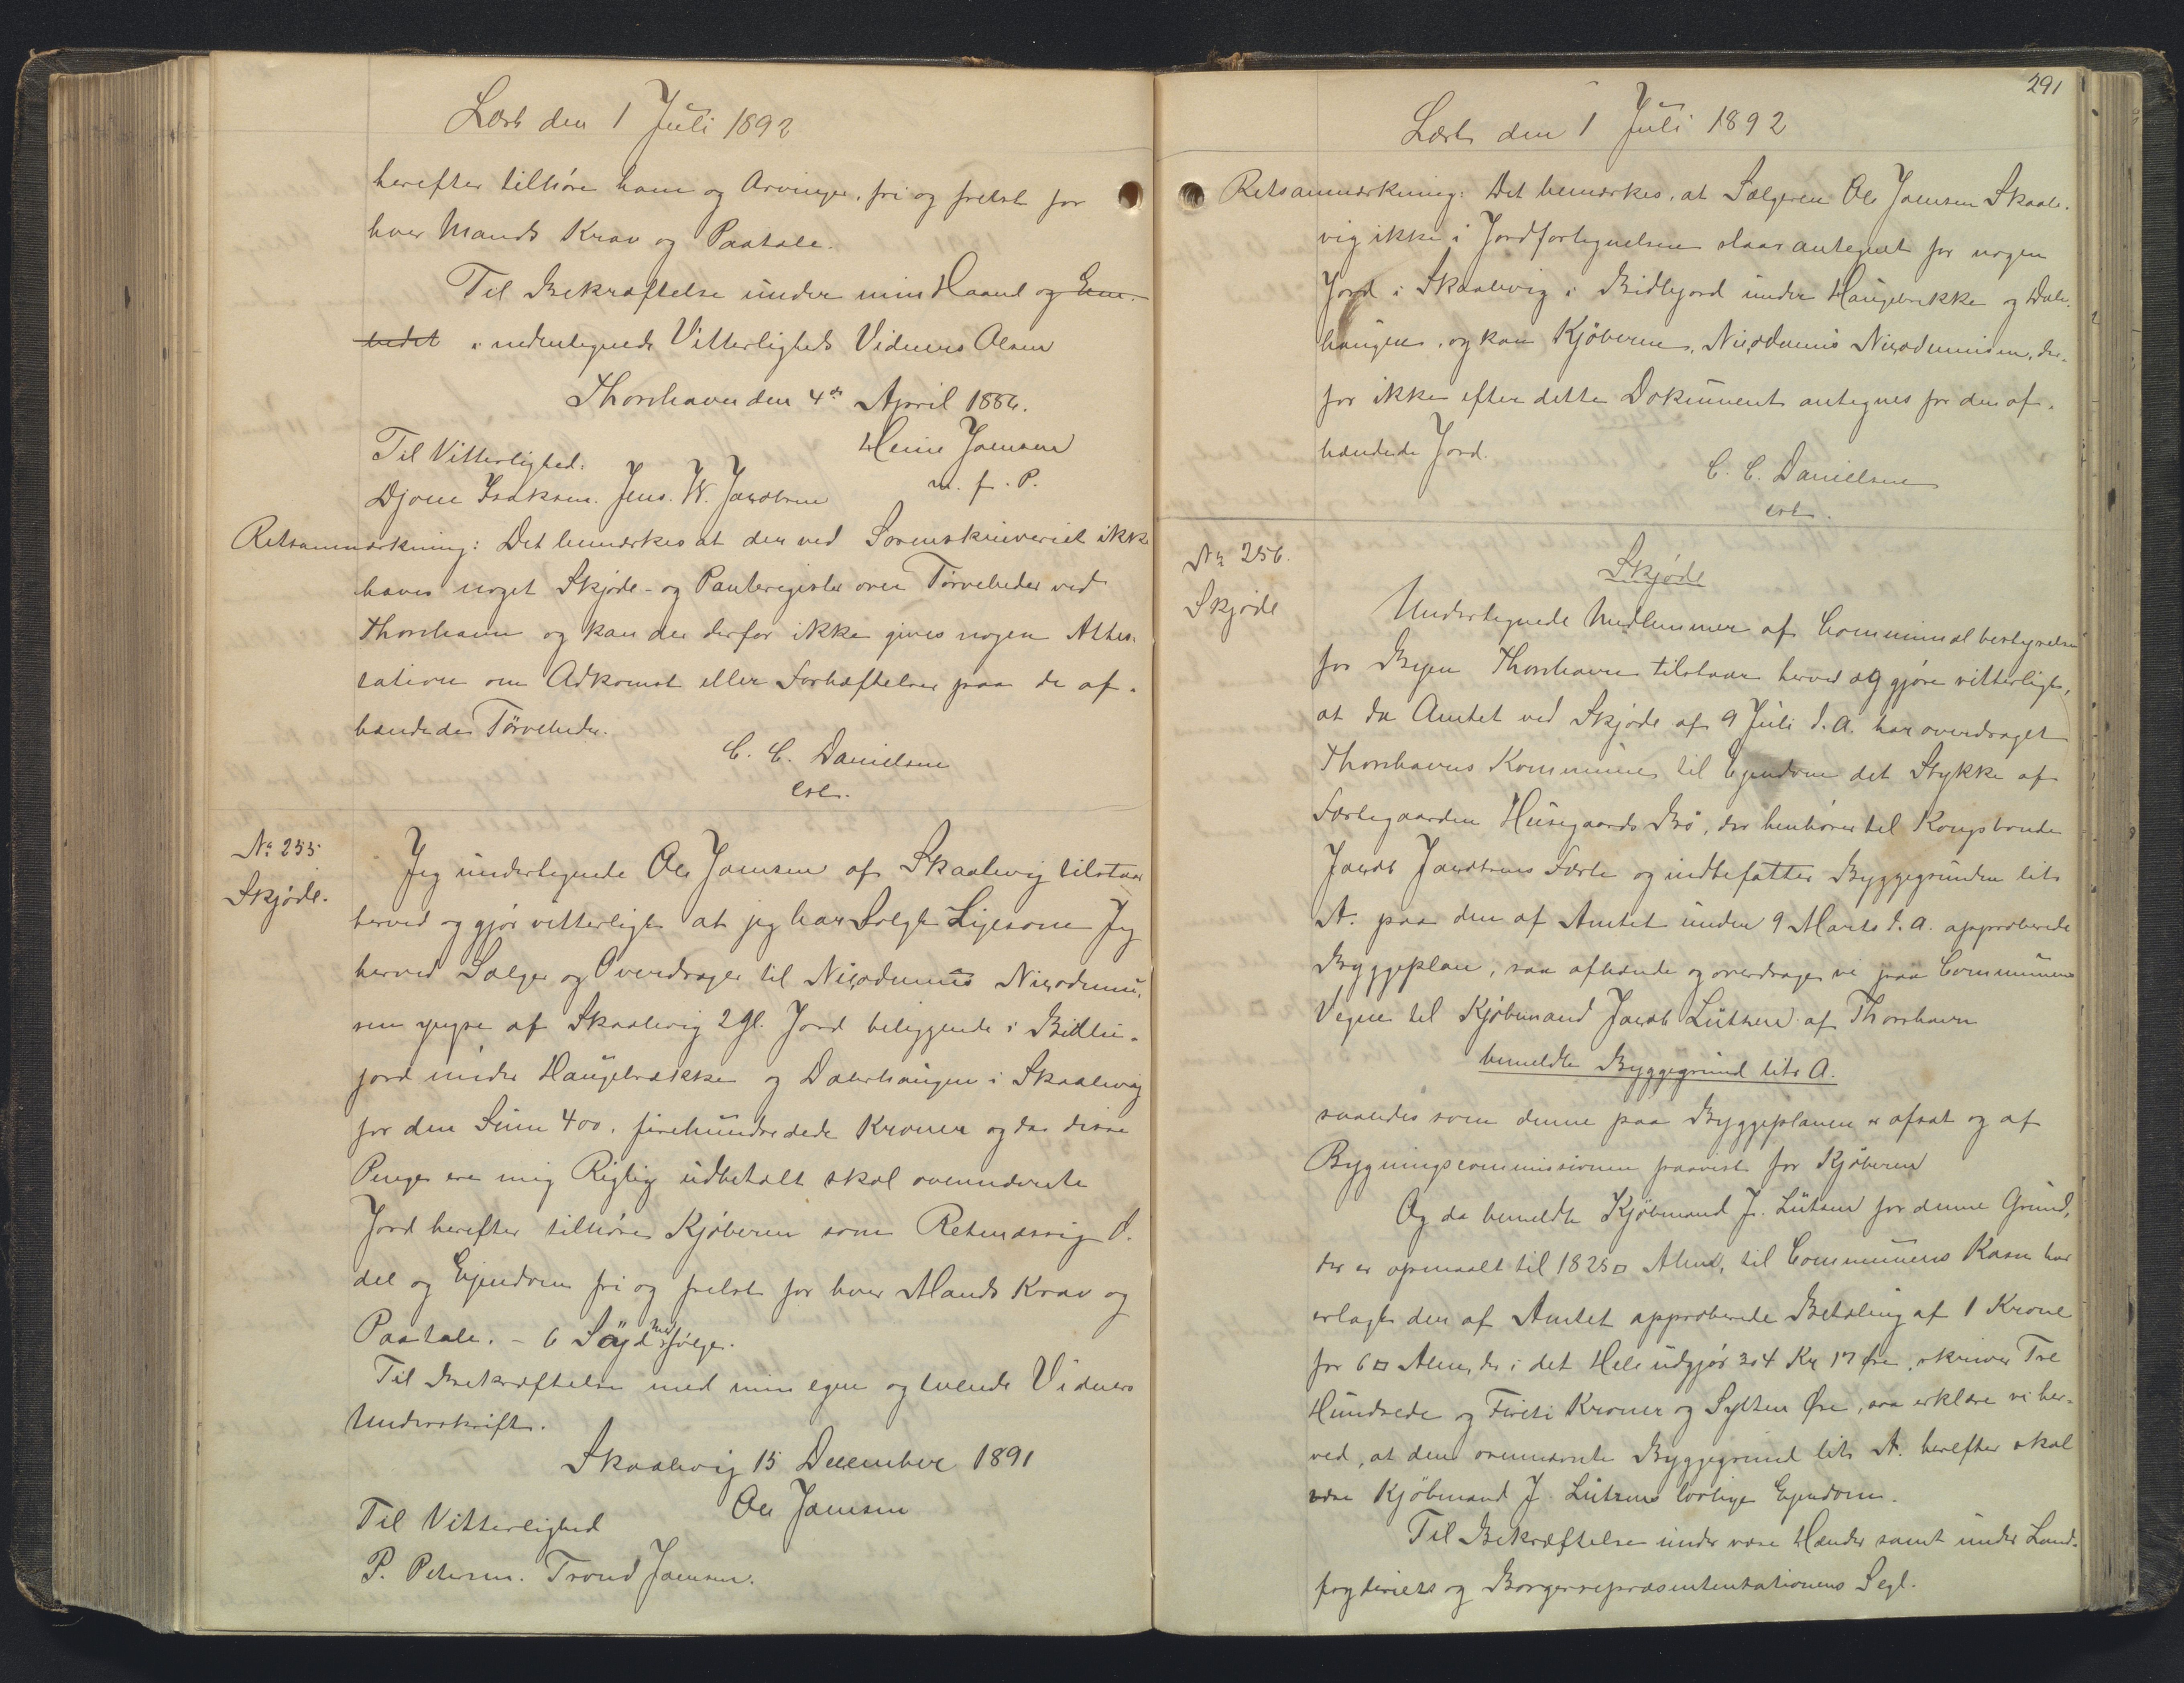 Læst den 1 Juli 1892
herefter tilhøre ham og Arvinger, fri og frelst for
hver Mands Krav og Paatale.
Til Bekræftelse under min Haand og
i nedentegnede Vitterligheds Vidners Olsen
Thorshavn den 4de April 1886.
Til Vitterlighed: Heine Joensen
Djone Isaksen. Jens. W. Jacobsen m. f. P.
Retsanmærkning: Det bemærkes at der ved Sorenskriveriet ikke
haves noget Skjøde- og Panteregister over Tørveheder ved
Thorshavn og kan der derfor ikke gives nogen Attes-
tation om Adkomst eller Forhæftelser paa de af-
hændede Tørveheder.
C. C. Danielsen
cst.
No 255
Skjøde.
Jeg undertegnede Ole Joensen af Skaalevig tilstaar
herved og gjør vitterligt at jeg har Solgt Ligesom Jeg
herved Sælger og Overdrager til Nicodemus Nicodemu-
sen yngre af Skaalevig 2 Gl. Jord beliggende i Bidle-
jord under Haugebrekke og Dalerhaugen i Skaalevig
for den Sum 400. firehundredede Kroner og da disse
Penge ere mig Rigtig udbetalt skal ovennævnte
Jord herefter tilhøre Kjøberen som Retmæssig O-
del og Ejendom fri og frelst for hver Mands Krav og
Paatale. - 6 Søyd medfølger.
Til Bekræftelse med min egen og tvende Vidners
Underskrift.
Skaalevig 15 December 1891
Til Vitterlighed Ole Joensen
P. Petersen. Trond Joensen.
291
Læst den 1 Juli 1892
Retsanmærkning: Det bemærkes, at Sælgeren Ole Joensen Skaale-
vig ikke i Jordfortegnelsen staar antegnet for nogen
Jord i Skaalevig i Bidlejord under Haugebrekke og Dale-
haugen, og kan Kjøberen, Nicodemus Nicodemusen, der-
for ikke efter dette Dokument antegnes for den af-
hændede Jord.
C. C. Danielsen
cst.
No 256.
Skjøde
Skjøde
Undertegnede Medlemmer af Communalbestyrelsen
for Byen Thorshavn tilstaar herved og gjøre vitterligt,
at da Amtet ved Skjøde af 9 Juli d. A. har overdraget
Thorshavns Kommune til Ejendom det Stykke af
Fæstegaarden Husegaards Bø, der henhører til Kongsbonde
Jacob Jacobsens Fæste og indbefatter Byggegrunden litr
A. paa den af Amtet under 9 Marts d. A. approberede
Byggeplan, saa afhænde og overdrage vi paa Communens
Vegne til Kjøbmand Jacob Lützen af Thorshavn
bemeldte Byggegrund litr A.
saaledes som denne paa Byggeplanen er afsat og af
Bygningscommissionen paavist for Kjøberen
Og da bemeldte Kjøbmand J. Lützen for denne Grund,
der er opmaalt til 1825 □ Alen, til Communens Kasse har
erlagt den af Amtet approberede Betaling af 1 Krone
for 6 □ Alen, der i det Hele udgjør 304 Kr 17 Øre, skriver Tre
Hundrede og Fireti Kroner og Sytten Øre, saa erklære vi her-
ved, at den ovennævnte Byggegrund litr A. herefter skal
være Kjøbmand J. Lützens lovlige Ejendom.
Til Bekræftelse under vore Hænder samt under Land-
fogderiets og Borgerrepræsententationens Segl.